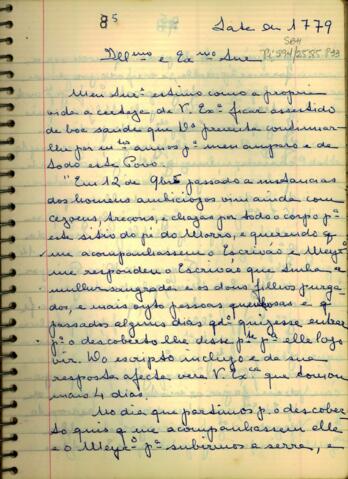 85
Data de 1779
SBH
Pi 594/2555 P33
Illmo e Exmo Snr
Meu Snr estimo como a propria
vida a certeza de V. Exa ficar assistido
de boa saude que Ds permita continuar-
lhe por mtos annos pa meu amparo e de
todo este Povo.
"Em 12 de 9bro passado a instancias
dos homens ambiciozos vim ainda com
cezoens, e chagas por todo o corpo pa
este sitio do pi do Morro, e querendo q
me acompanhassem o Escrivão e Meyo
me respondeu o Escrivão que tinha a
mulher sangrada e os dous filhos purga-
dos, e mais oyto pessoas queixosas e q
passados alguns dias qdo quizesse entrar
pa o descoberto lhe desse pte pa elle logo
vir. Do escripto incluzo e de sua
resposta afecta vera V. Exca que tomou
mais 4 dias.
No dia que partimos pa o descober-
to quis q me acompanhassem elle
e o Meyro pa subirmos a serra, e